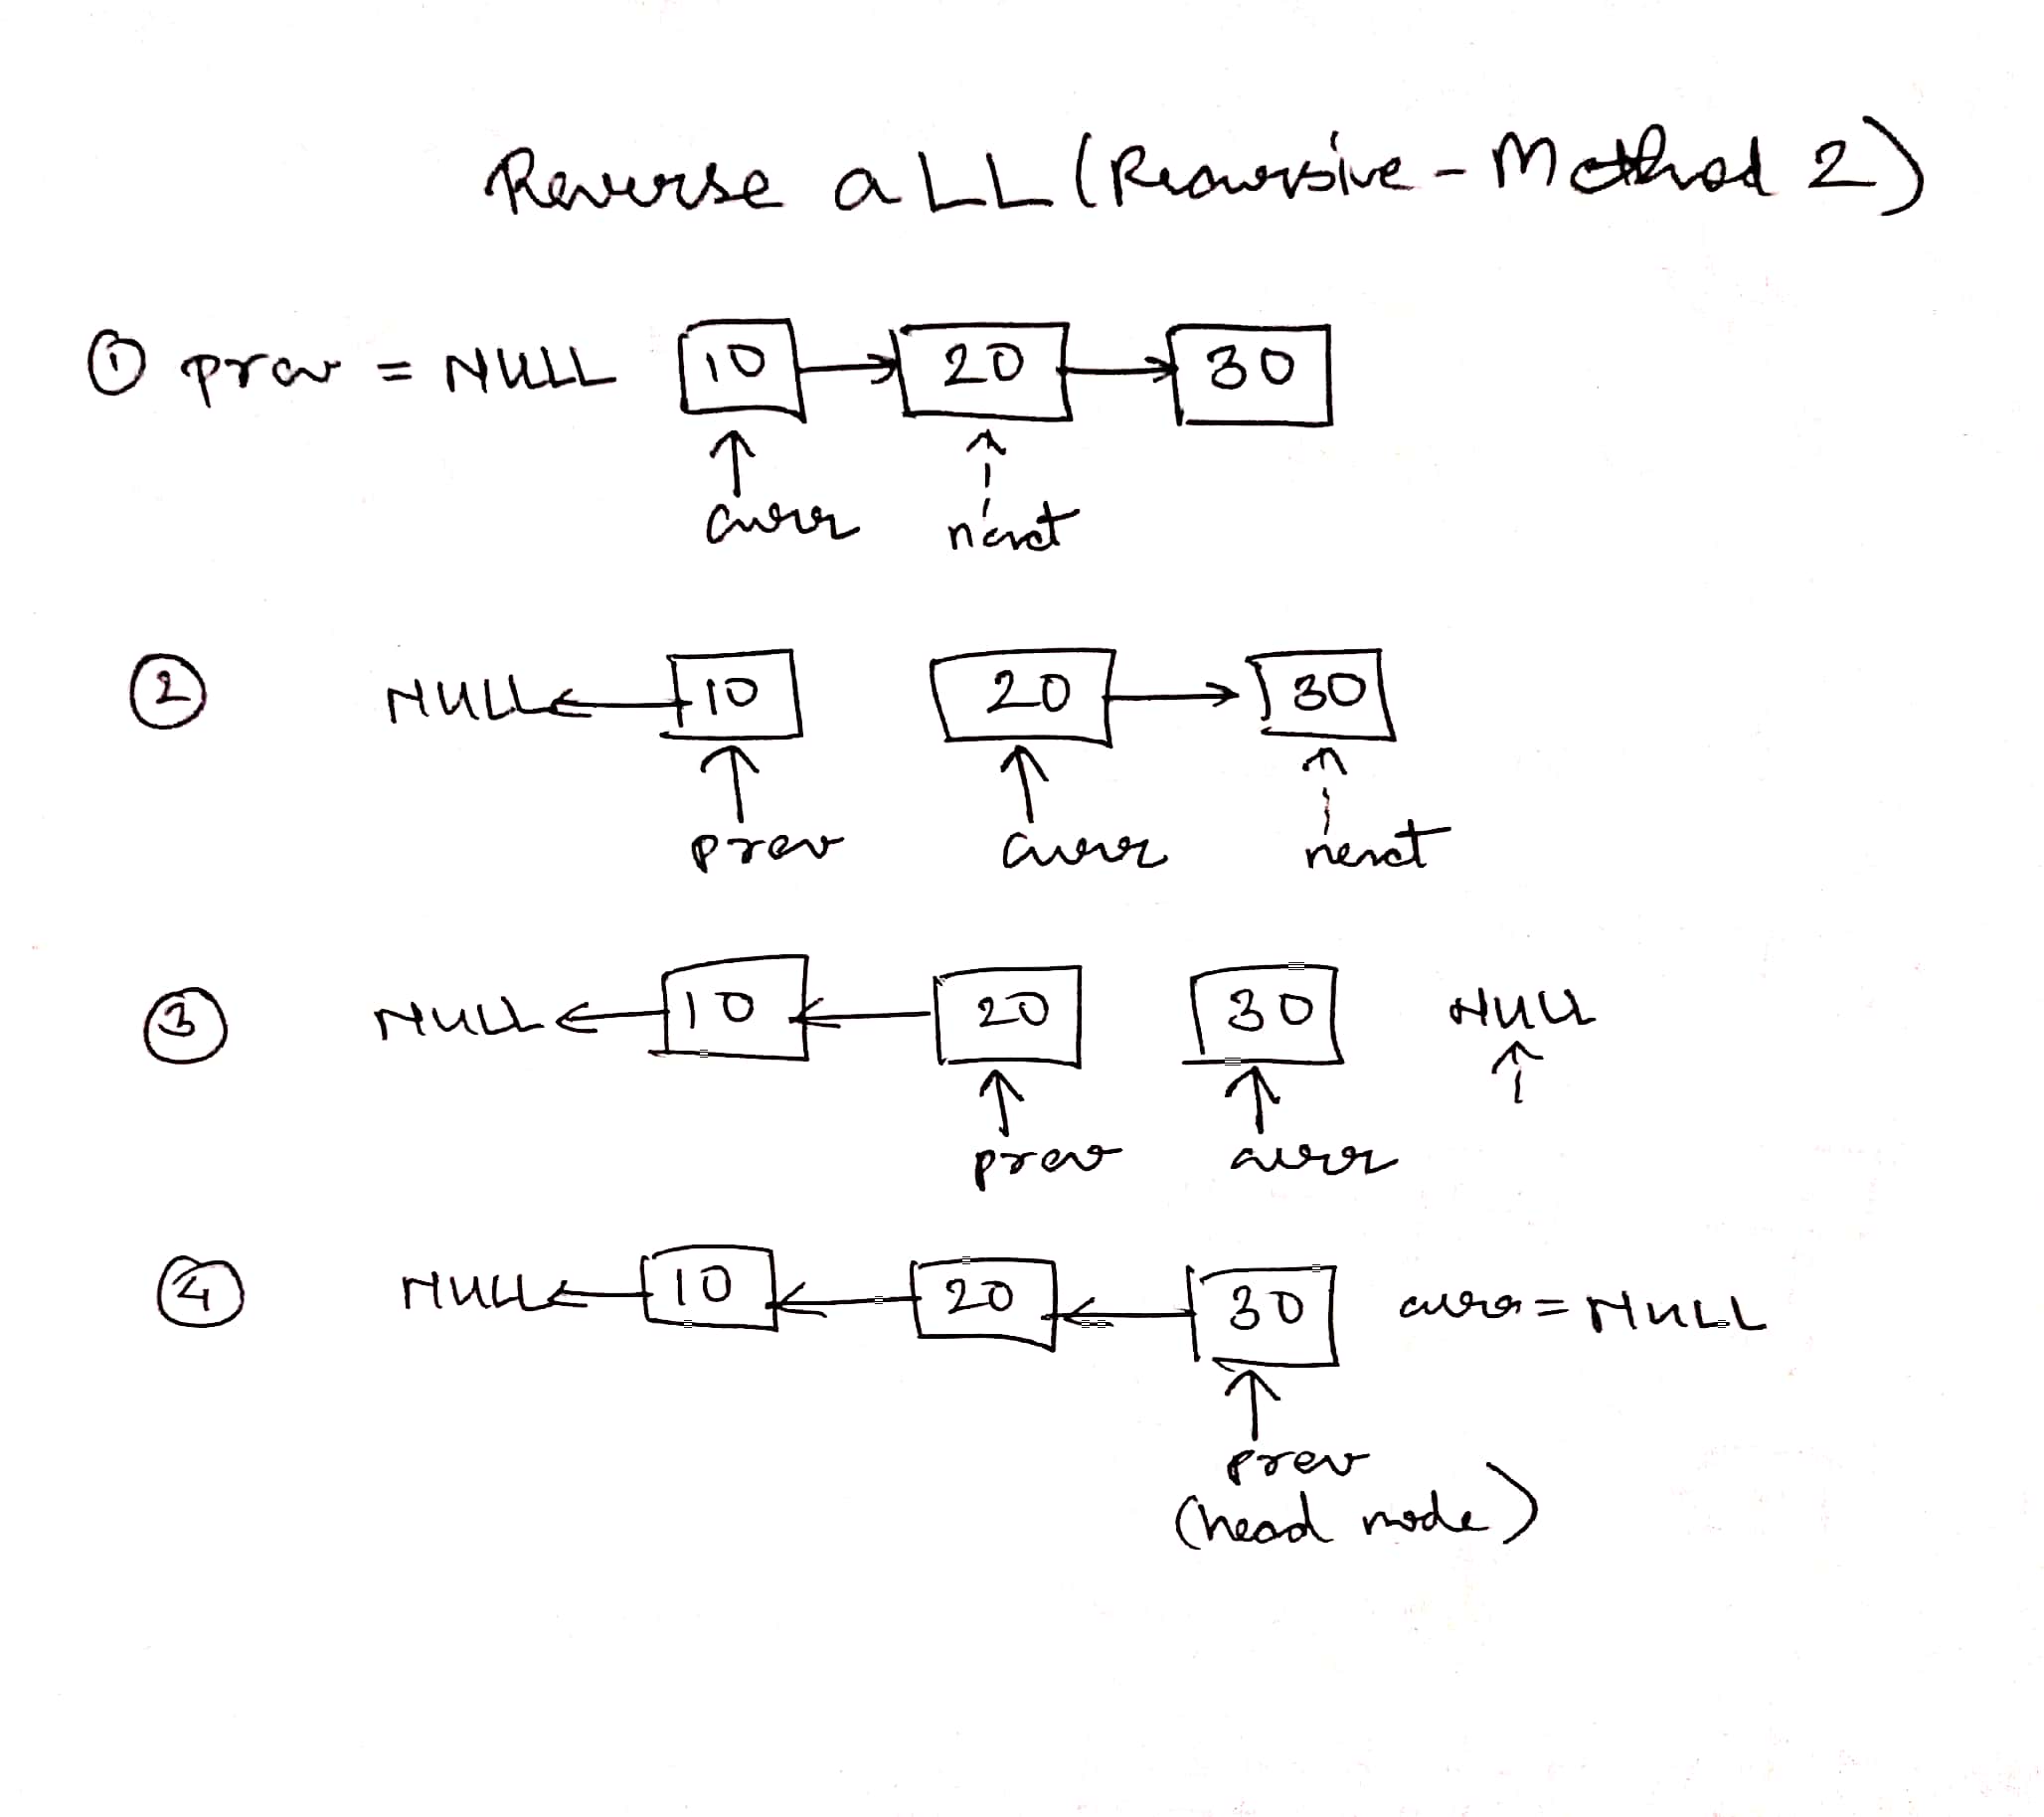 Reverse a LL (Recursive - Method 2)
① prev = NULL 10 20 30
curr next
② NULL 10 20 30
prev curr next
③ NULL 10 20 30 NULL
prev curr
④ NULL 10 20 30 curr = NULL
prev
(head node)